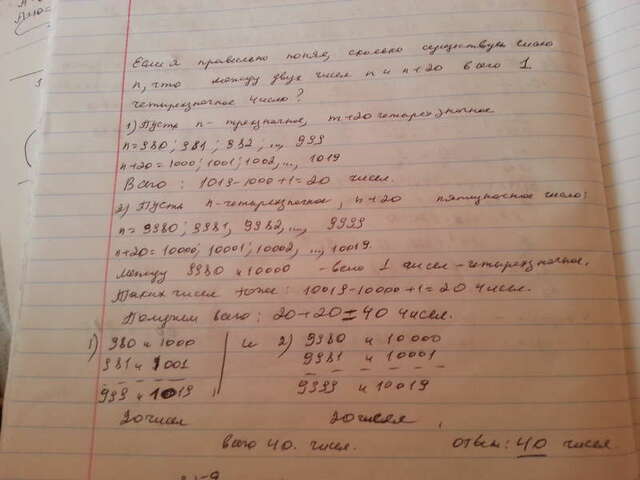 Если я правильно понял, сколько существует чисел
n, что между двух чисел n и n+20 всего 1
четырехзначное число?
1) Пусть n - трехзначное, n+20 четырехзначное
n=980; 981; 982; ..., 999
n+20=1000; 1001; 1002, ..., 1019
Всего: 1019-1000+1=20 чисел.
2) Пусть n-четырехзначное, n+20 пятизначное число:
n=9980; 9981, 9982, ..., 9999
n+20=10000; 10001; 10002, ..., 10019
между 9980 и 10000 - всего 1 чисел - четырехзначное.
Таких чисел тоже: 10019-10000+1=20 чисел.
Получим всего: 20+20=40 чисел.
1) 980 и 1000 и 2) 9980 и 10000
981 и 1001 9981 и 10001
999 и 1019, 9999 и 10019
20 чисел 20 чисел,
всего 40. чисел. ответ: 40 чисел.